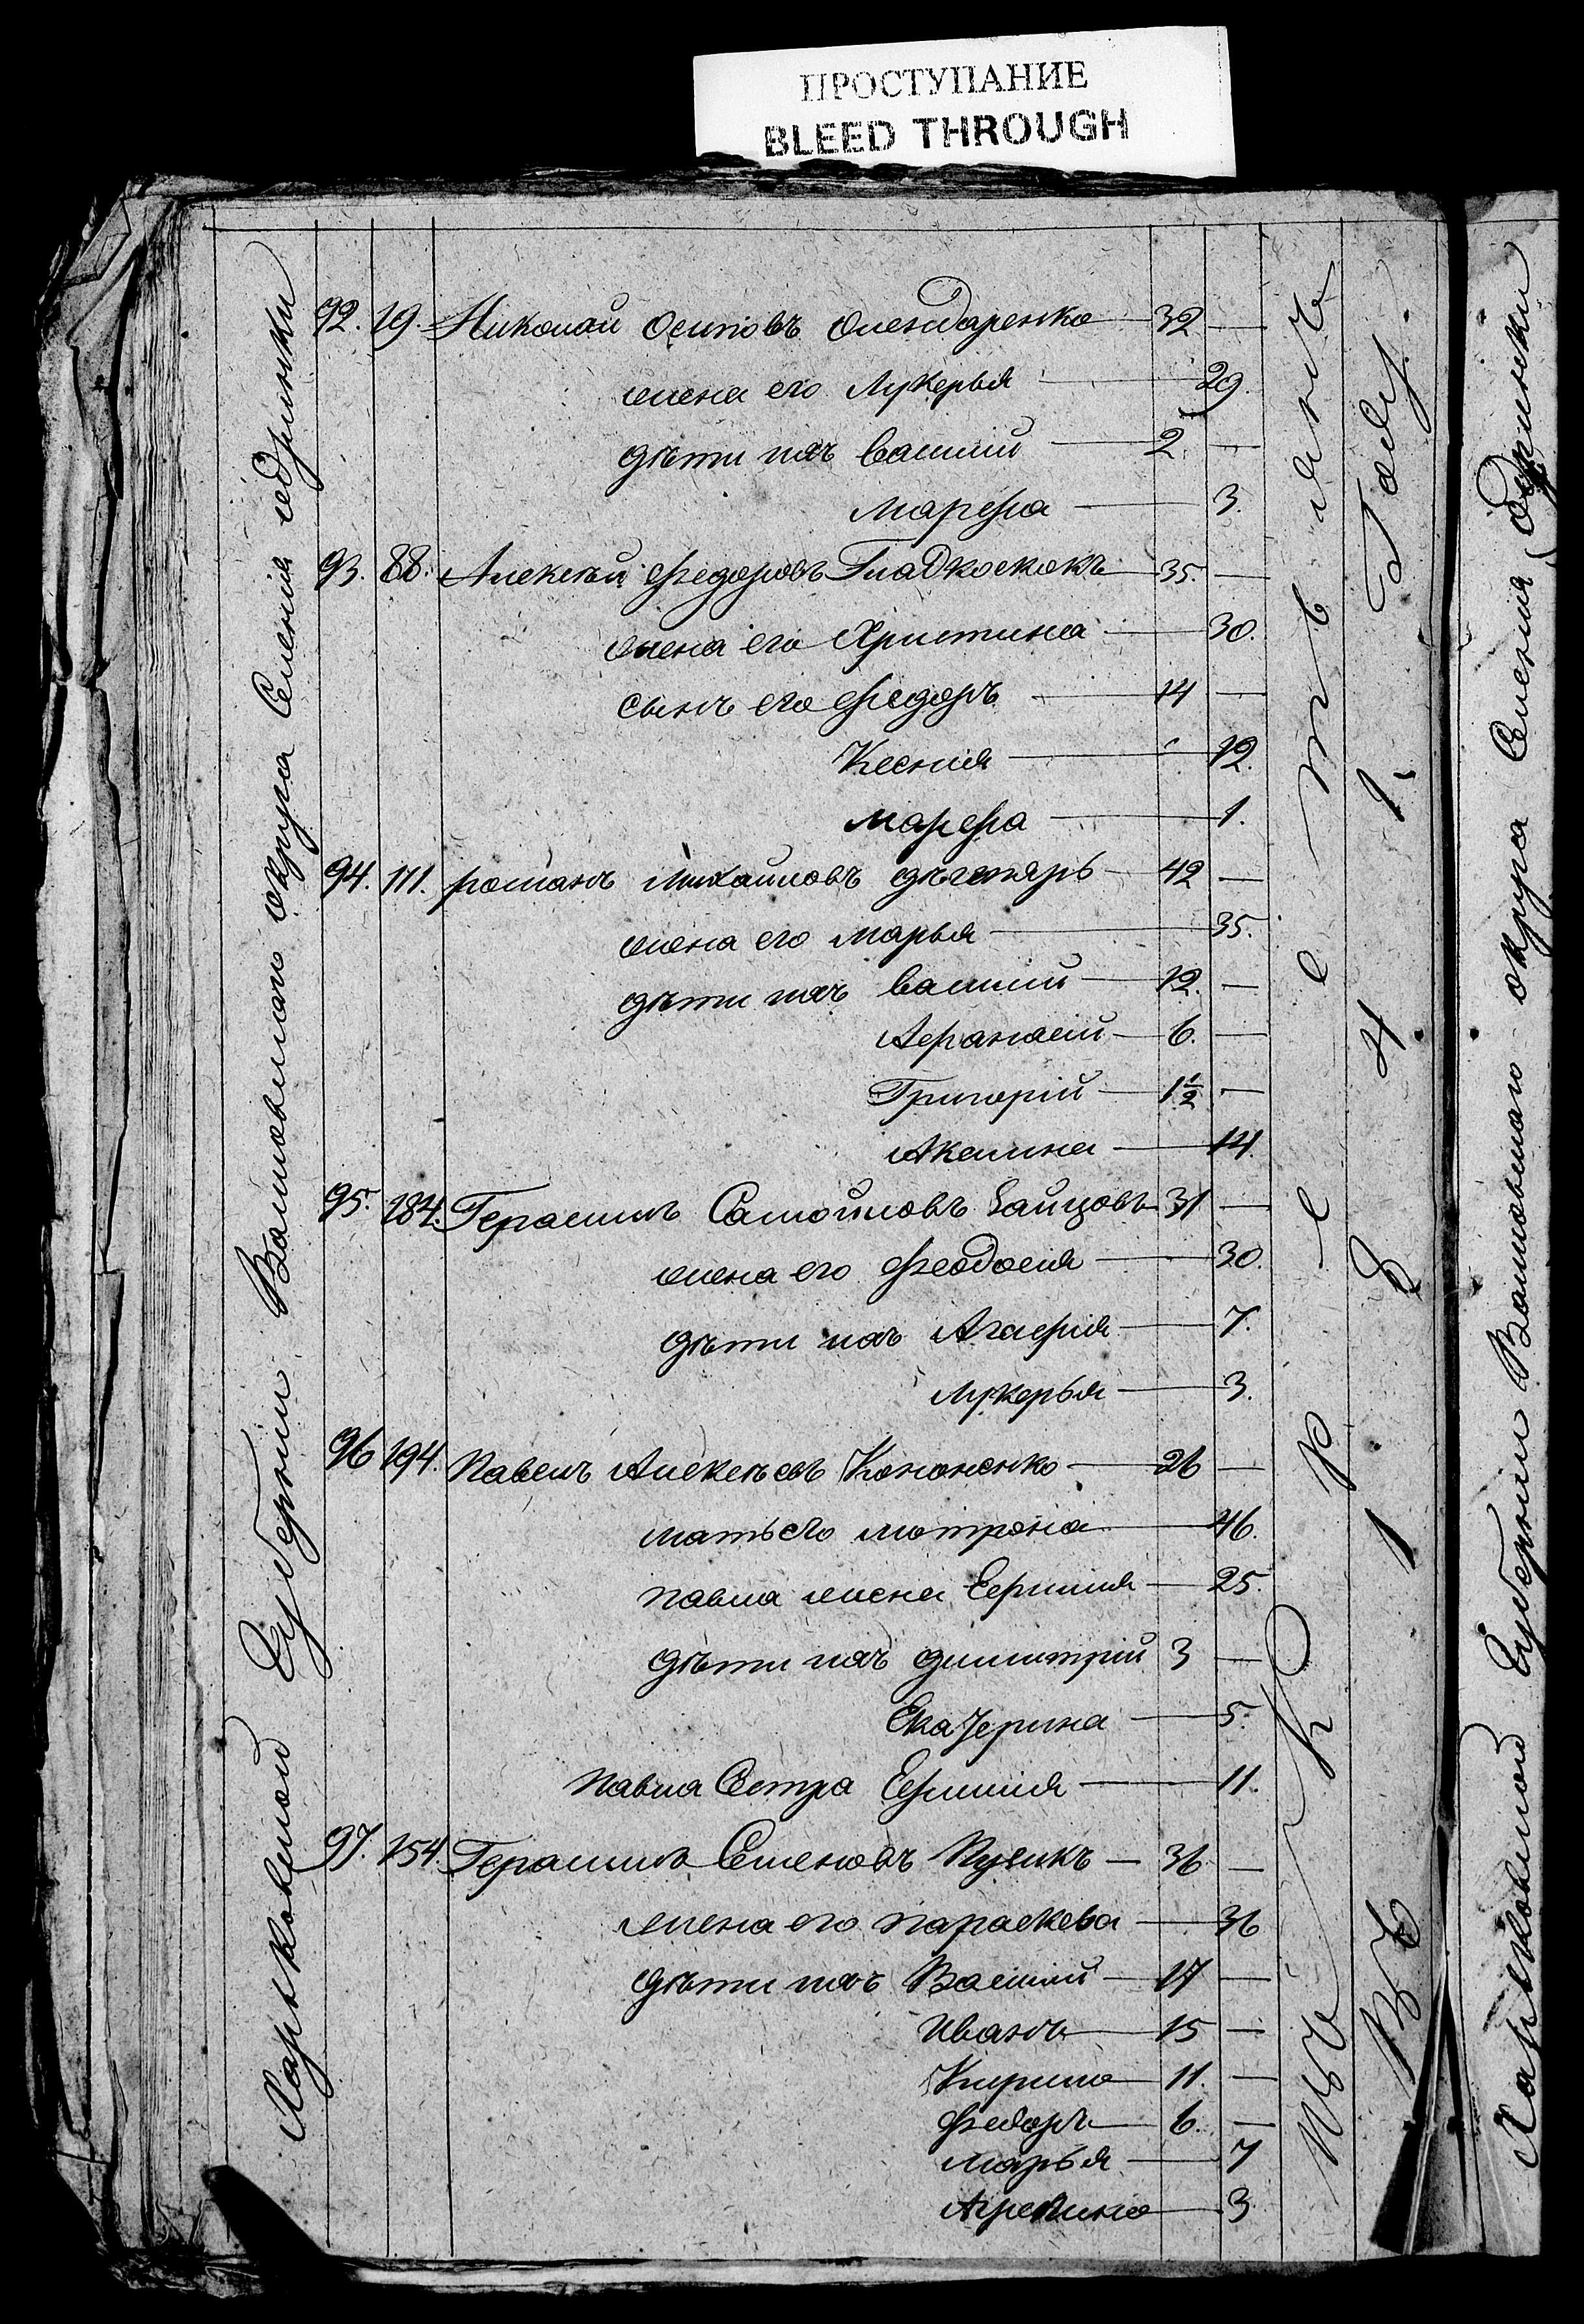 ПРОСТУПАНИЕ
BLEED THROUGH
Харьковской Губерніи Волковскаго округа Селенія одринки
92. 19. Николай Осиповъ Олендаренко 32 —
жена его Лукерья 29.
дѣти ихъ Василій 2. —
Марфа 3.
93. 88. Алексѣй Федоровъ Гладкоскокъ 35. —
жена его Христина 30.
сынъ его Федоръ 14 —
Ксенія 12.
Марфа 1.
94. 111. романъ Михайловъ дѣгтярь 42 —
жена его марья 35.
дѣти ихъ василій 12. —
Афанасій 6. —
Григорій 1½ —
Акилина 14.
95. 184. Герасимъ Самойловъ Зайцовъ 31 —
жена его Феодосія 30.
дѣти ихъ Агафія 7.
Лукерья 3.
96 194. Павелъ Алексѣевъ Кононенко 26 —
мать его мотрона 46.
павла жена Ефимія 25.
дѣти ихъ димитрій 3 —
Екатерина 5.
павла Сестра Ефимія 11.
97. 154. Герасимъ Семеновъ Пузикъ 36 —
жена его параскева 36
дѣти ихъ Василій 17 —
Иванъ 15 —
Кирило 11. —
Федоръ 6. —
Марья 7
Агрепина 3.
Изъ крестьянъ
Въ 1841 Году.
Харьковской Губерніи Волковскаго округа Селенія Одринки